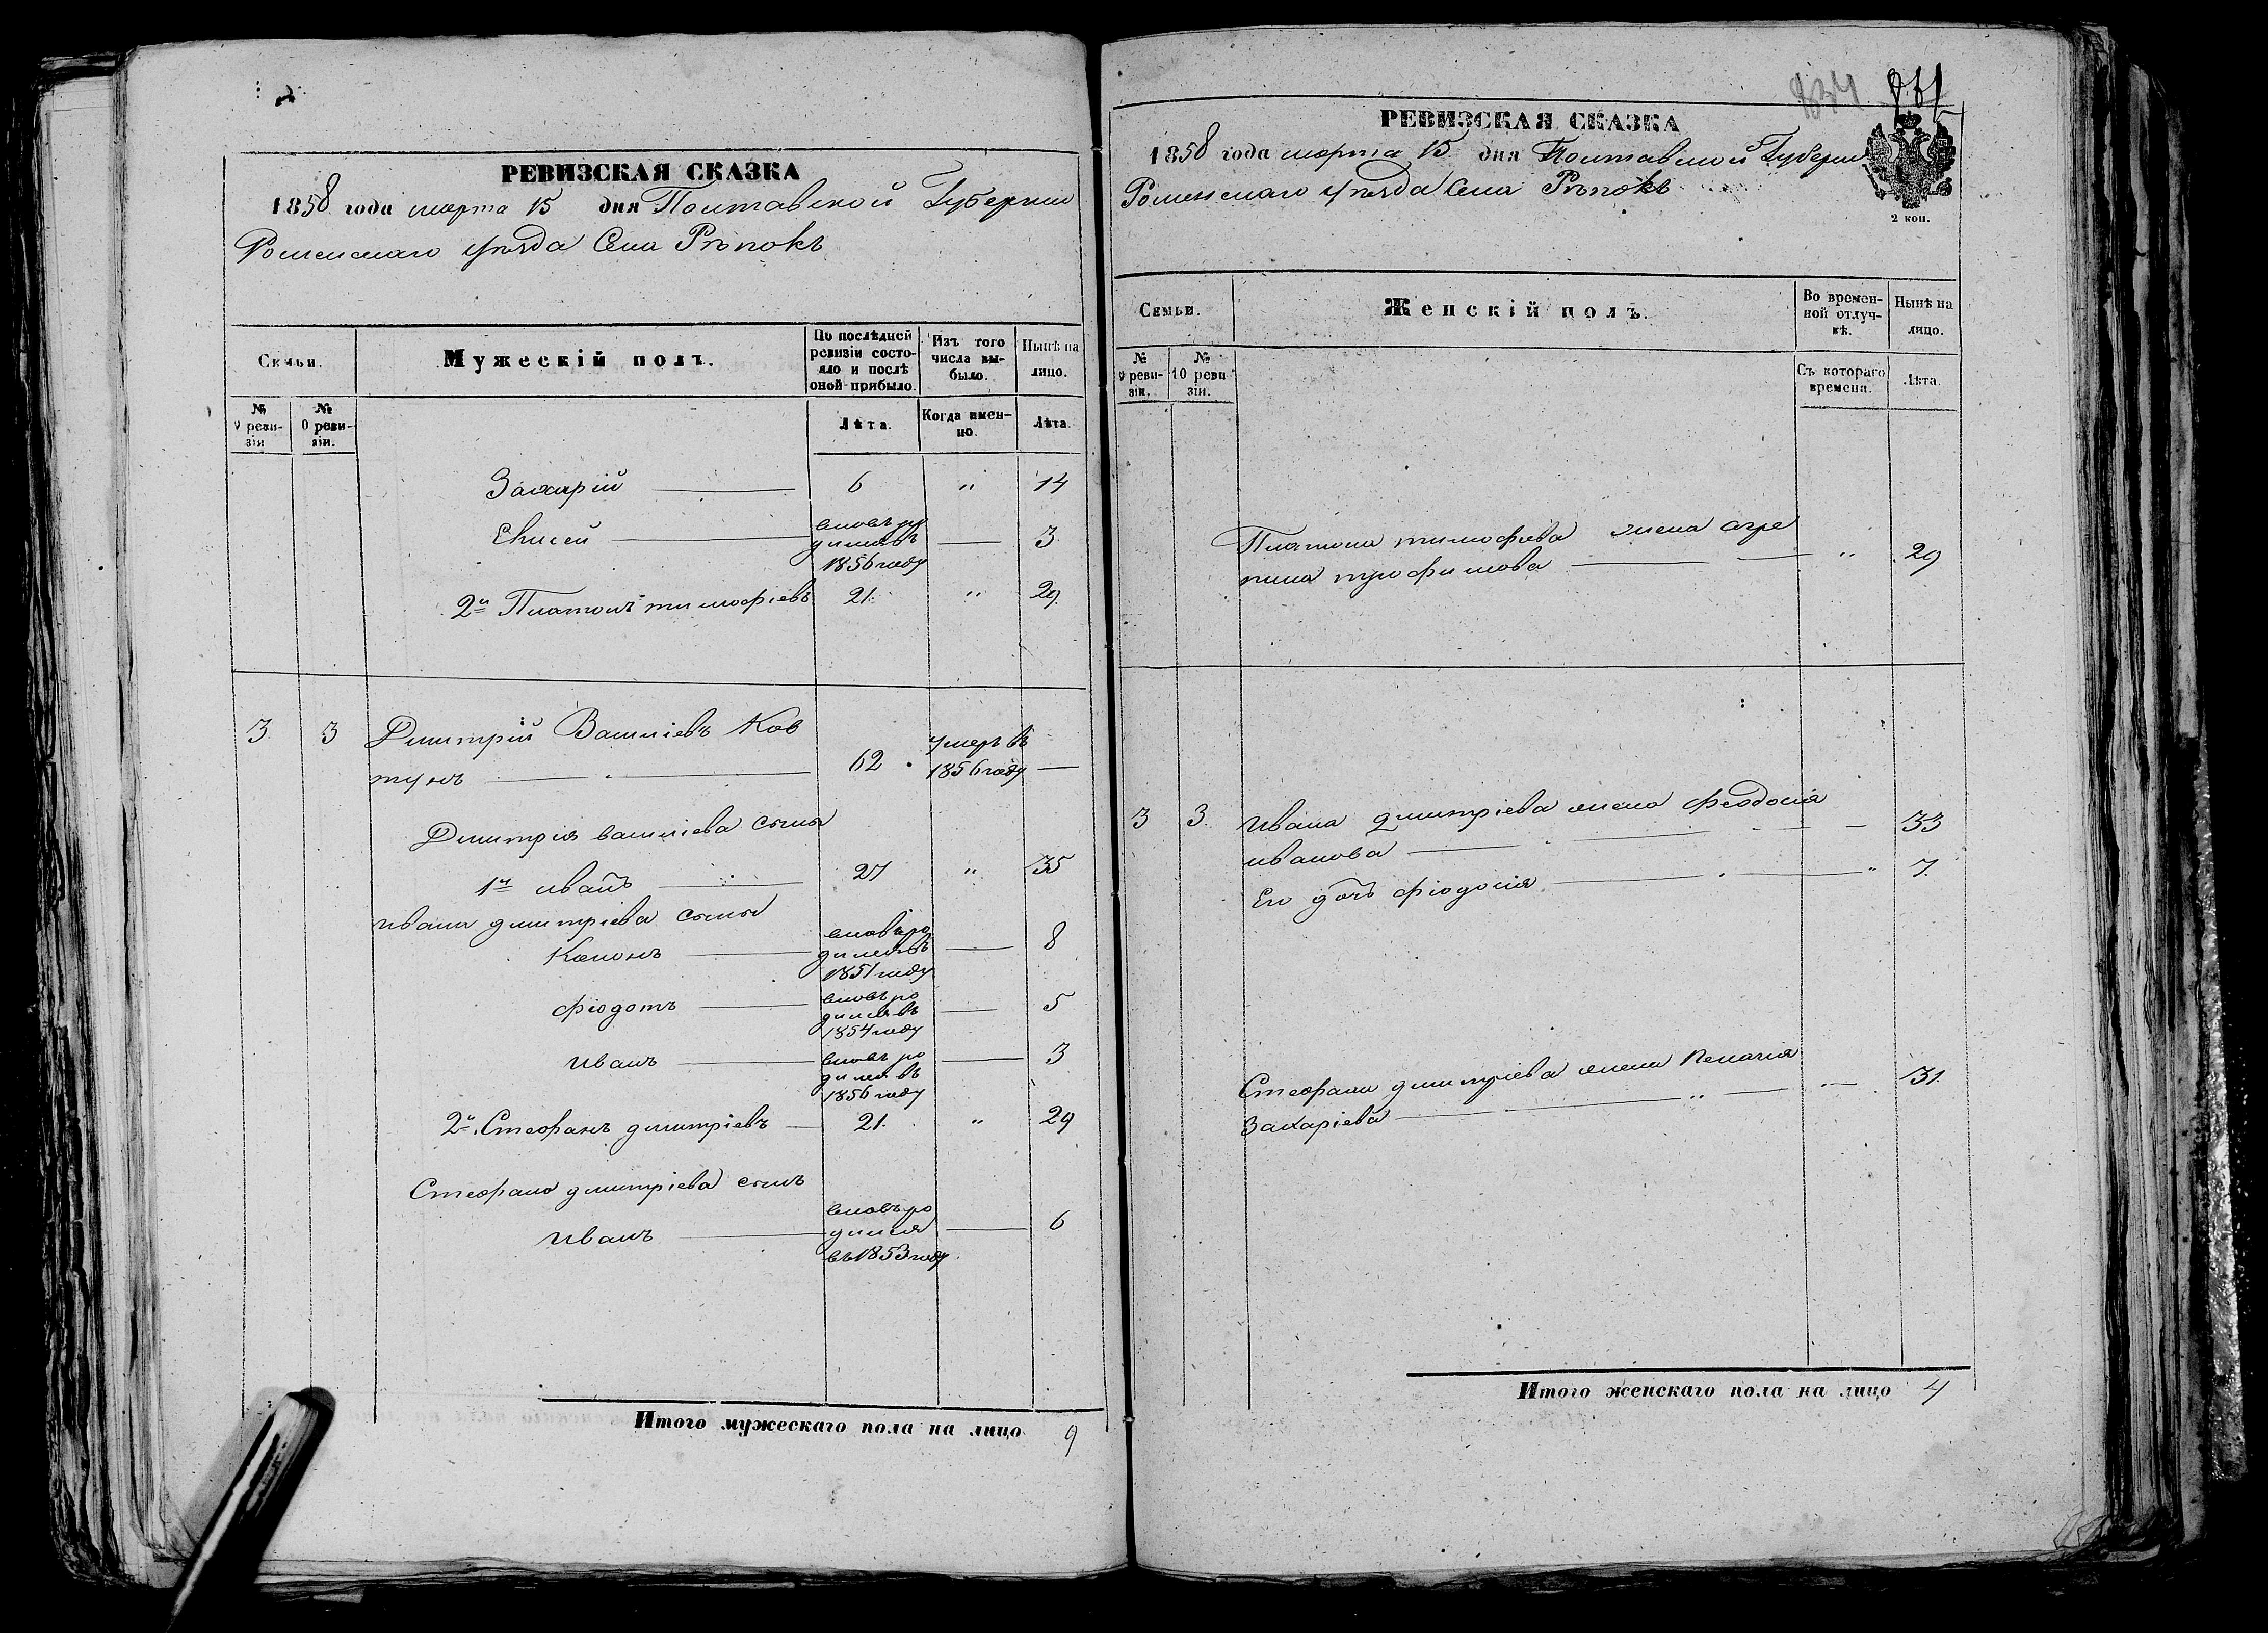 РЕВИЗСКАЯ СКАЗКА
1858 года марта 15 дня Полтавской Губернии
Роменскаго уѣзда Села Рѣпокъ
Семьи.
Мужескій полъ.
По послѣдней ревизіи состояло и послѣ оной прибыло.
Изъ того числа выбыло.
Нынѣ на лицо.
№ 9 ревизіи
№ 10 ревизіи.
Лѣта.
Когда именно.
Лѣта.
Захарій 6 " 14
Елисей вновь ро
дился въ 3
1856 году
2й Платонъ тимофіевъ 21. " 29.
3. 3 Димитрій Василіевъ Ков
тунъ 62 умеръ въ
1856 году
Димитрія василіева сыны
1й иванъ 27 " 35
ивана димитріева сыны
Кононъ вновь ро
дился въ 8
1851 году
фіодотъ вновь ро
дился въ 5
1854 году
иванъ вновь ро 3
дился въ
1856 году
2й Стефанъ димитріевъ 21. " 29
Стефана димитріева сынъ
иванъ вновь ро
дился 6
въ 1853 году
Итого мужескаго пола на лицо 9
834
РЕВИЗСКАЯ СКАЗКА
1858 года марта 15 дня Полтавской Губерніи
Роменскаго уѣзда Села Рѣпокъ
2 коп.
Семьи.
Женскій полъ.
Во временной отлучкѣ.
Нынѣ на лицо.
№ 9 ревизіи.
№ 10 ревизіи.
Съ котораго времени.
Лѣта.
Платона тимофѣева жена агре
пина трофимова " 29
3 3. ивана димитріева жена феодосія
иванова 33
Его дочь фіодосія " 7
Стефана димитріева жена Пелагія
Захаріева " 31.
Итого женскаго пола на лицо 4